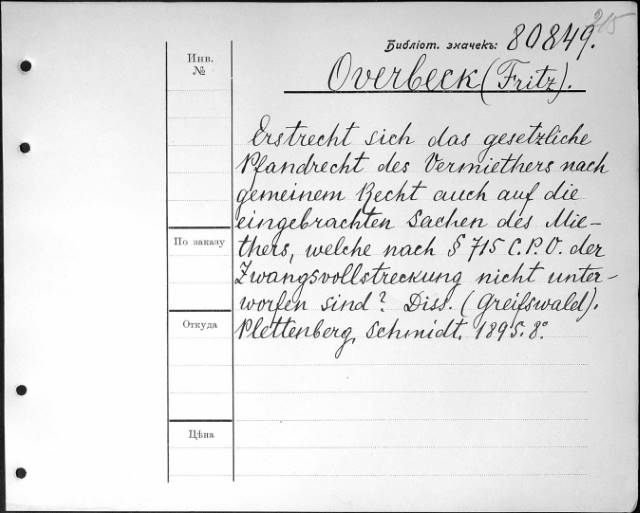 215
Библіот. значекъ: 80849.
Overbeck (Fritz).
Инв.
№
Erstreckt sich das gesetzliche
Pfandrecht des Vermiethers nach
gemeinem Recht auch auf die
eingebrachten Sachen des Mie-
thers, welche nach § 715 C.P.O. der
Zwangsvollstreckung nicht unter-
worfen sind? Diss. (Greifswald).
Plettenberg, Schmidt. 1895. 8°.
По заказу
Откуда
Цѣна